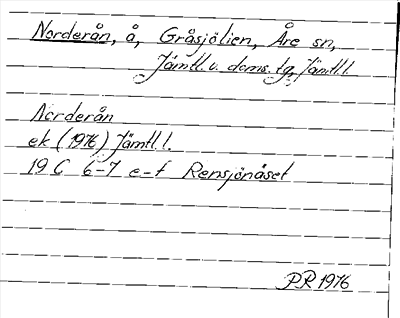 Norderån, å, Gråsjölien, Åre sn,
Jämtl. v. doms. tg, Jämtl. l.
Norderån
ek (1976) Jämtl. l.
19 C 6-7 e-f Rensjönåset
PR 1976